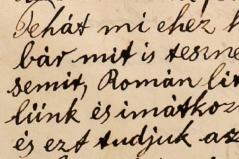 Tehát mi ehez k
bár mit is teszne
semit, Román li
lünk és imátkoz
és ezt tudjuk az